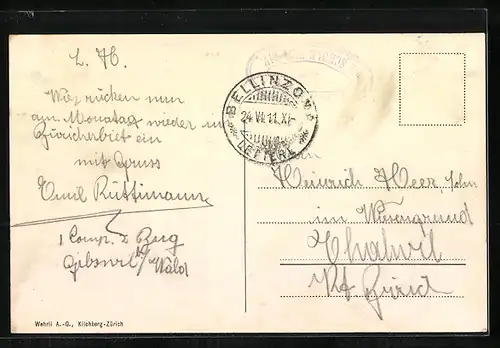 L. H.
Wir rücken nun
am Montag wieder in
Zürcherbiet ein
mit Gruss
Emil Rüttimann
1 Comp. 2 Zug
Gibswil b/ Wald
Wehrli A.-G., Kilchberg-Zürich
BELLINZONA
24. VI. 11. XI-
LETTERE
Heinrich Heer, Sohn
im Wiesengrund
Thalwil
Kt. Zürich